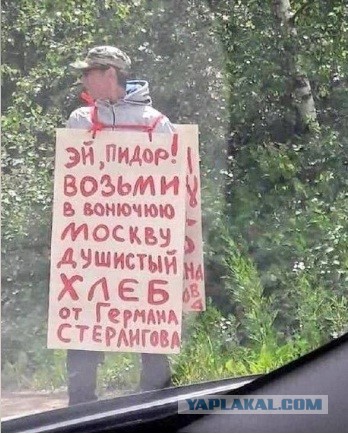 ЭЙ, ПИДОР!
ВОЗЬМИ
В ВОНЮЧЮЮ
МОСКВУ
ДУШИСТЫЙ
ХЛЕБ
ОТ ГЕРМАНА
СТЕРЛИГОВА
YAPLAKAL.COM